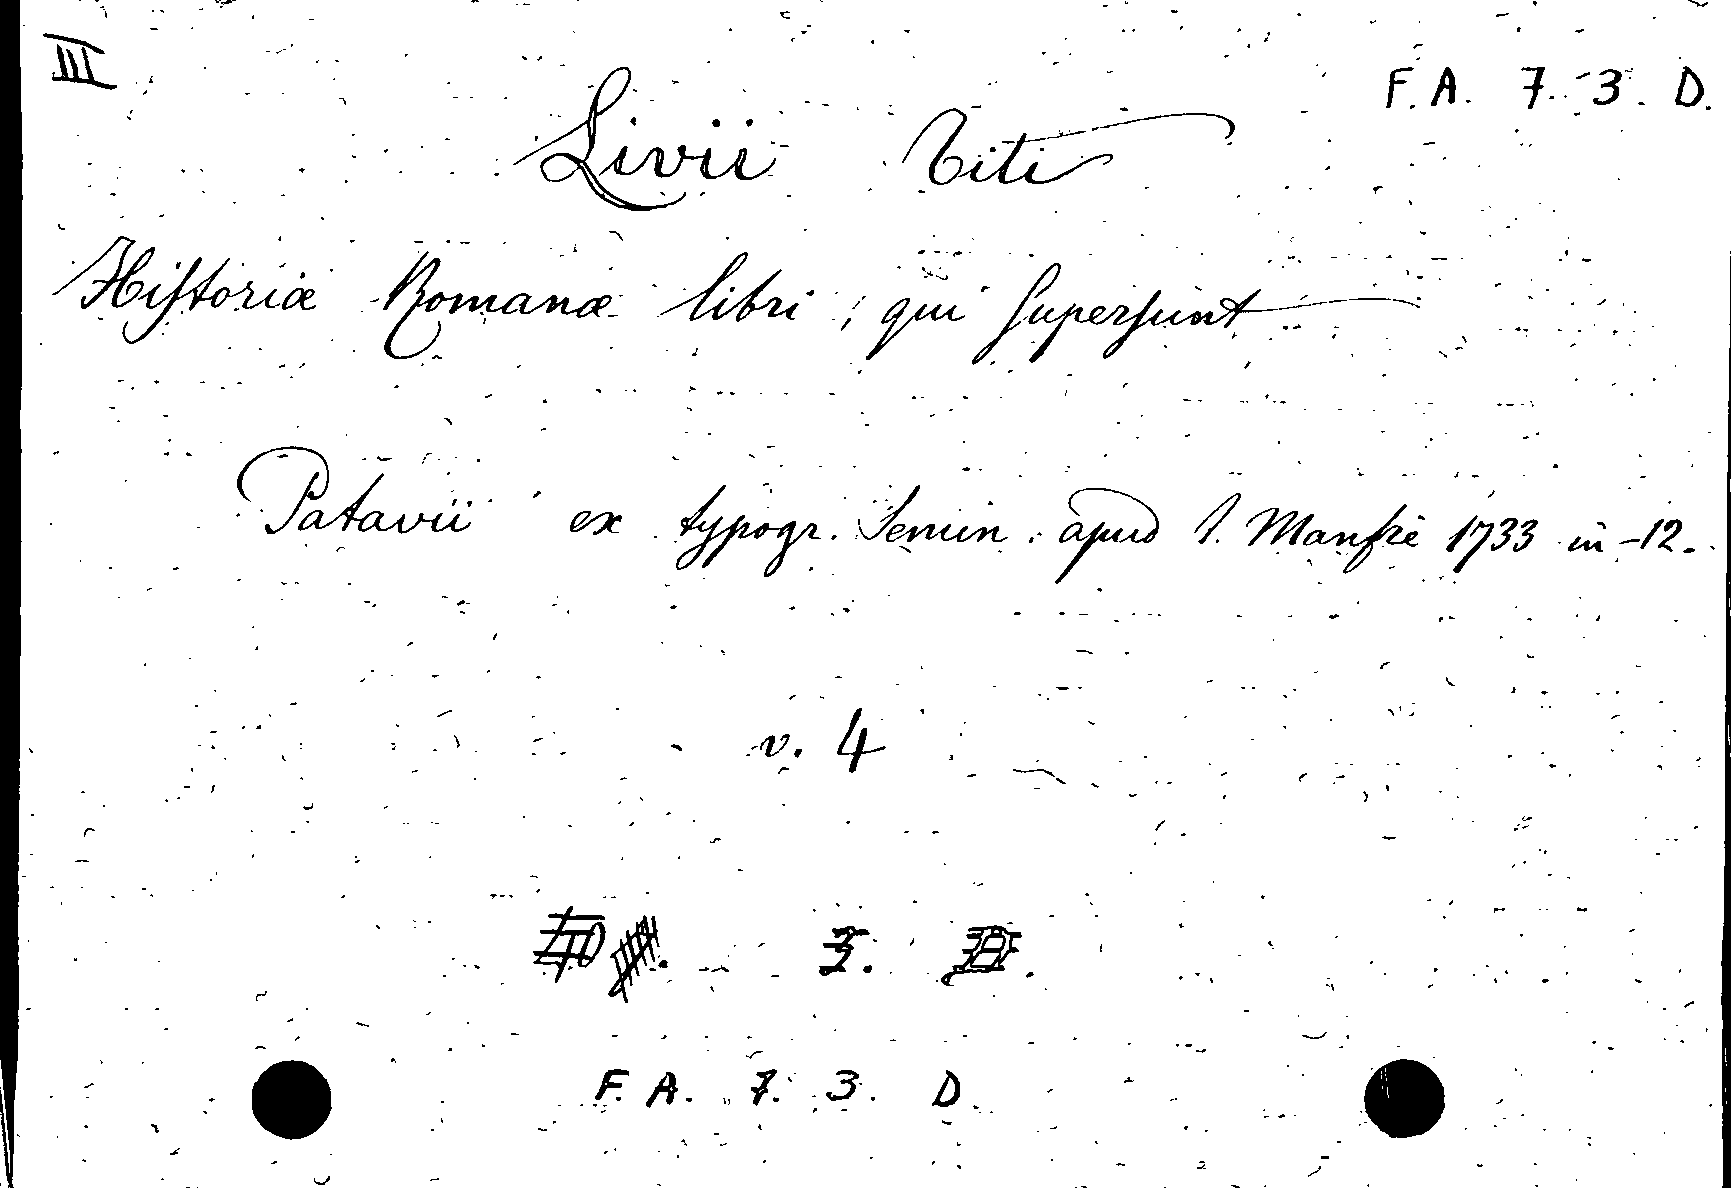 III
F. A. 7. 3. D.
Livii Titi
Hiſtoriæ Romanæ libri, qui ſuperſunt
Patavii ex typogr. Semin. apud I. Manfrè 1733 in-12.
v. 4
F. A. 7. 3. D